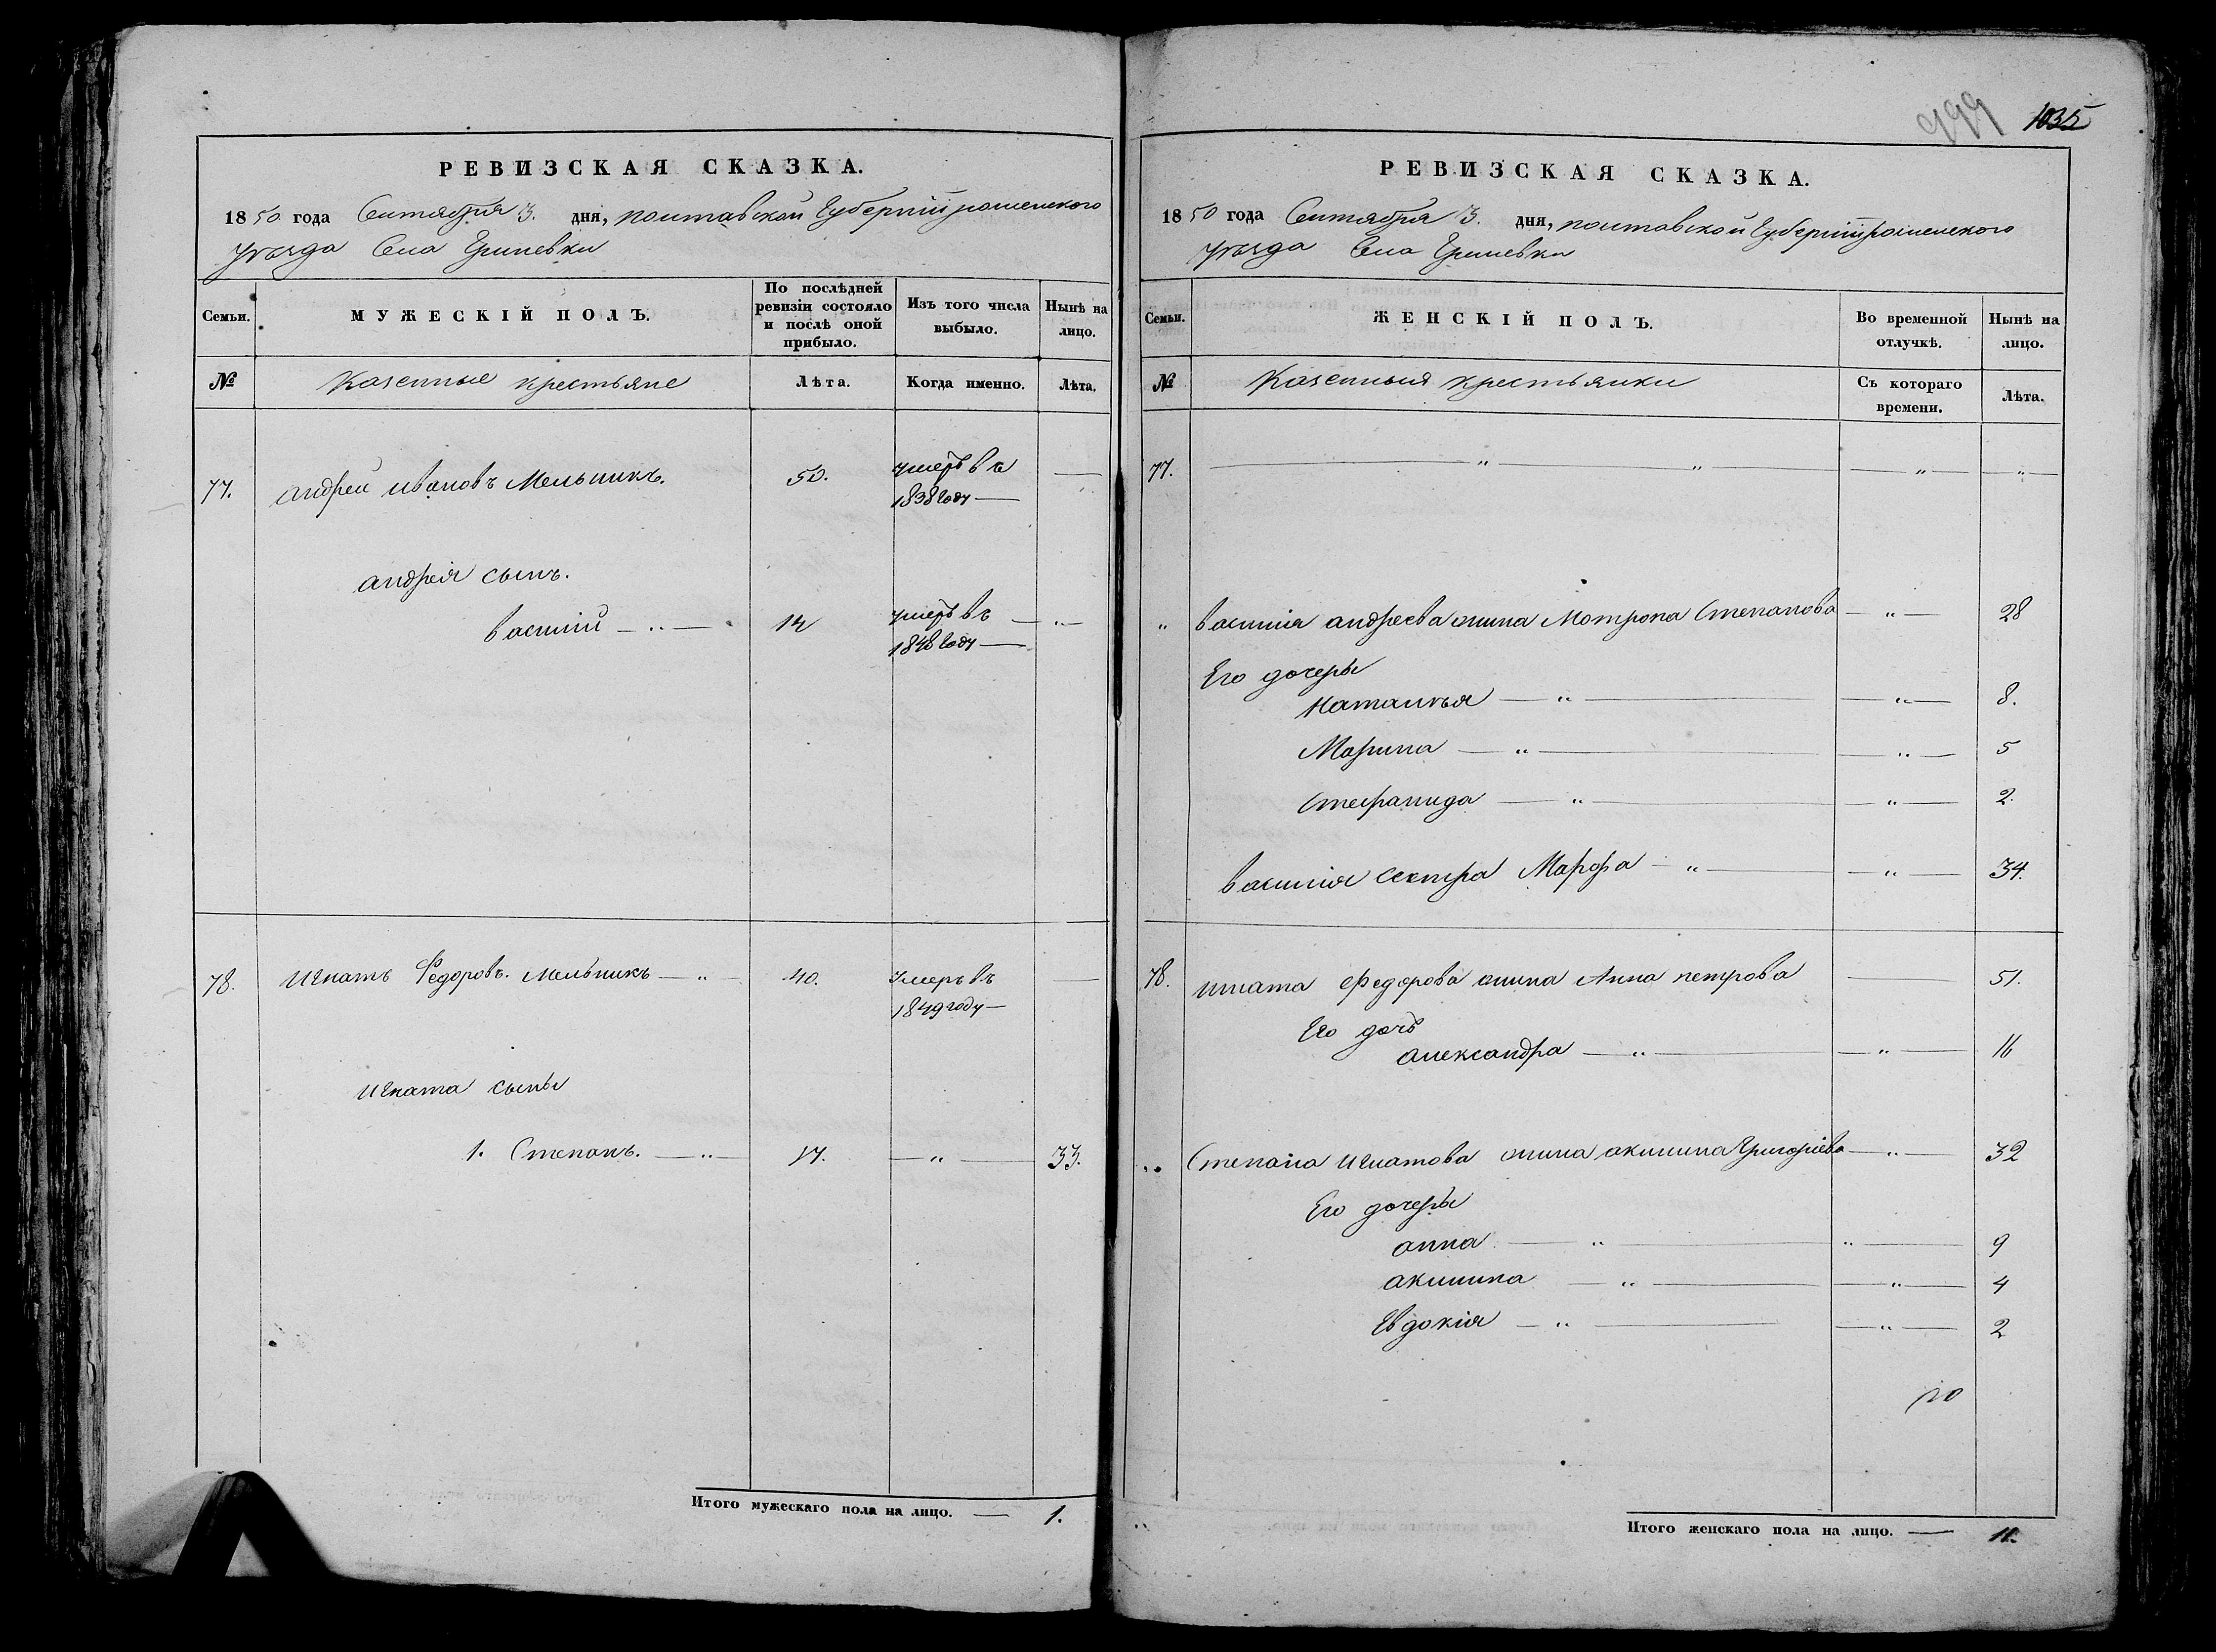 РЕВИЗСКАЯ СКАЗКА.
1850 года Сентября 3. дня, полтавской Губерніи роменского
уѣзда Села Гриневки
Семьи.
МУЖЕСКІЙ ПОЛЪ.
По послѣдней ревизіи состояло и послѣ оной прибыло.
Изъ того числа выбыло.
Нынѣ на лицо.
№
Казенные крестьяне
Лѣта.
Когда именно.
Лѣта.
77. андрей ивановъ Мельникъ. 50. умеръ въ
1838 году
андрея сынъ.
василій 14 умеръ въ
1848 году
78. Игнатъ Федоровъ. Мельникъ 40. Умеръ въ
1849 году
Игната сыны
1. Степанъ. 17. 33.
Итого мужескаго пола на лицо. 1.
999 1035
РЕВИЗСКАЯ СКАЗКА.
1850 года Сентября 3. дня, полтавской Губерніи роменского
уѣзда Села Гриневки
Семьи.
ЖЕНСКІЙ ПОЛЪ.
Во временной отлучкѣ.
Нынѣ на лицо.
№
Казенныя крестьянки
Съ котораго времени.
Лѣта.
77.
василія андреева жина Мотрона Степанова 28
Его дочеры
Наталья 8.
Марина 5
Стефанида 2.
василія сестра Марфа 34.
78. игната Федорова жина Анна петрова 51.
Его дочь
александра 16
Степана Игнатова жина акилина Григоріева 32
Его дочеры
анна 9
акилина 4
Евдокія 2
Итого женскаго пола на лицо. 11.